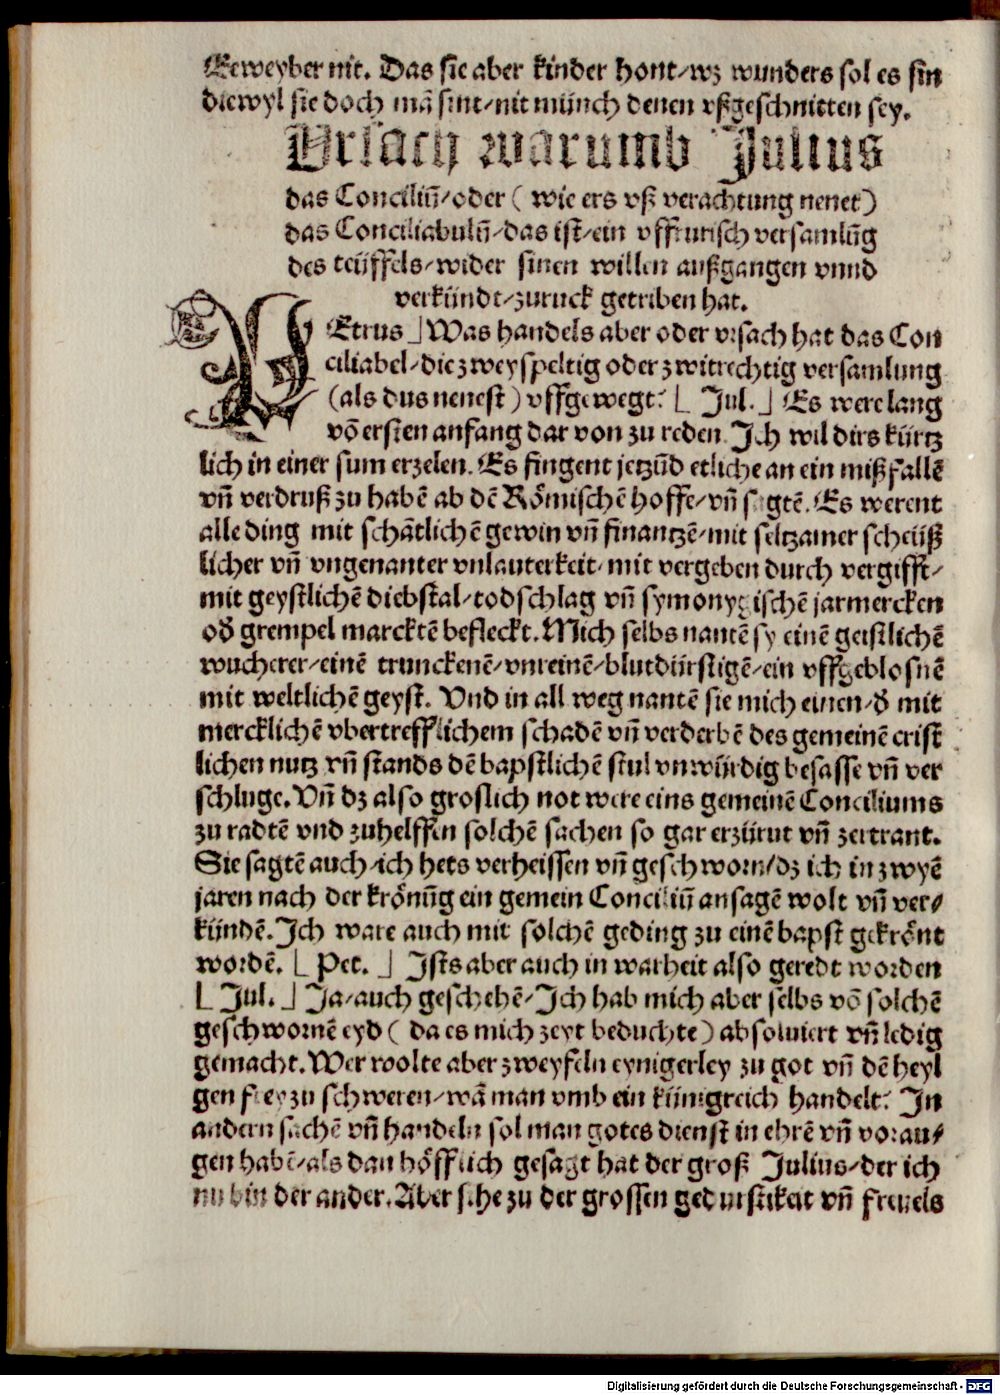 Eeweyber nit. Das sie aber kinder hont/wz wunders sol es sin
diewyl sie doch mā sint/nit münch denen vßgeschnitten sey.
Vrsach warumb Julius
das Conciliū/oder ( wie ers vß verachtung nenet )
das Conciliabulū/das ist/ein vffrurisch versamlūg
des teüffels/wider sinen willen außgangen vnnd
verkündt/zuruck getriben hat.
PEtrus ⌋ Was handels aber oder vrsach hat das Con
ciliabel/die zweyspeltig oder zwitrechtig versamlung
(als dus nenest ) vffgewegt? ⌊ Jul. ⌋ Es were lang
vō ersten anfang dar von zu reden. Jch wil dirs kürtz
lich in einer sum erzelen. Es fingent jetzūd etliche an ein mißfallē
vñ verdruß zu habē ab dē Römischē hoffe/vñ sagtē. Es werent
alle ding mit schātlichē gewin vñ finantzē/mit seltzamer scheüß
licher vñ vngenanter vnlauterkeit/mit vergeben durch vergifft/
mit geystlichē diebstal/todschlag vñ symonyischē jarmercken
oď grempel marcktē befleckt. Mich selbs nantē sy einē geistlichē
wucherer/einē trunckenē/vnreinē/blutdürstigē/ein vffgeblosnē
mit weltlichē geyst. Vnd in all weg nantē sie mich einen/ď mit
mercklichē vbertrefflichem schadē vñ verderbē des gemeinē crist
lichen nutz vñ stands dē bapstlichē stul vnwürdig besasse vñ ver
schluge. Vñ dz also groslich not were eins gemeinē Conciliums
zu radtē vnd zuhelffen solchē sachen so gar erzürut vñ zertrant.
Sie sagtē auch/ich hets verheissen vñ geschworn/dz ich in zwyē
jaren nach der krönūg ein gemein Conciliū ansagē wolt vñ ver/
kündē. Jch ware auch mit solchē geding zu einē bapst gekrönt
wordē. ⌊ Pet. ⌋ Jsts aber auch in warheit also geredt worden
⌊ Jul. ⌋ Ja/auch geschehē/Jch hab mich aber selbs vō solchē
geschwornē eyd ( da es mich zeyt beduchte ) absoluiert vñ ledig
gemacht. Wer wolte aber zweyfeln eynigerley zu got vñ dē heyl
gen frey zu schweren/wā man vmb ein künigreich handelt? Jn
andern sachē vñ handeln sol man gotes dienst in ehrē vñ vorau/
gen habē/als dan höfflich gesagt hat der groß Julius/der ich
nu bin der ander. Aber sihe zu der grossen gedurstikeit vñ freuels
Digitalisierung gefördert durch die Deutsche Forschungsgemeinschaft - DFG